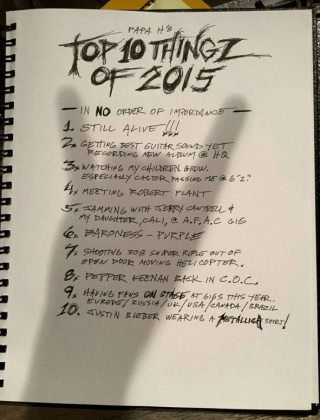 PAPA H'S
TOP 10 THINGZ
OF 2015
— IN NO ORDER OF IMPORTANCE —
1. STILL ALIVE !!!
2. GETTING BEST GUITAR SOUND YET
RECORDING NEW ALBUM @ HQ
3. WATCHING MY CHILDREN GROW.
ESPECIALLY CASTOR PASSING ME @ 6'2".
4. MEETING ROBERT PLANT
5. JAMMING WITH JERRY CANTRELL &
MY DAUGHTER, CALI, @ A.F.A.C GIG
6. BARONESS - PURPLE
7. SHOOTING 308 SNIPER RIFLE OUT OF
OPEN DOOR MOVING HELICOPTER.
8. PEPPER KEENAN BACK IN C.O.C.
9. HAVING FANS ON STAGE AT GIGS THIS YEAR.
EUROPE/RUSSIA/UK/USA/CANADA/BRAZIL
10. JUSTIN BIEBER WEARING A METALLICA SHIRT!